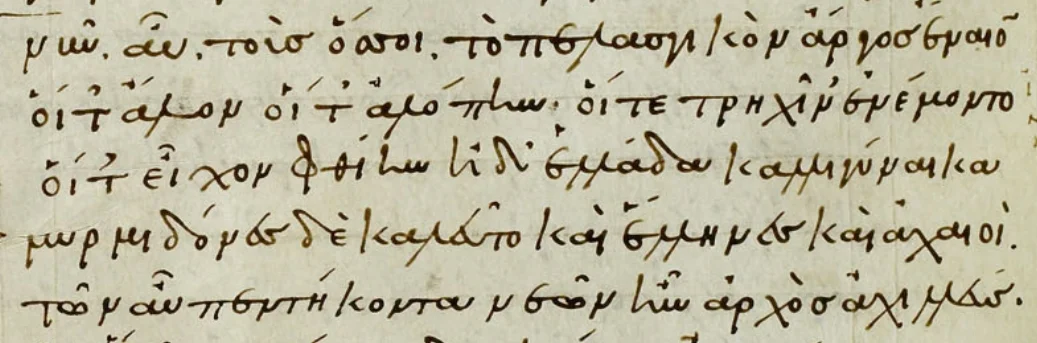 νῦν. αὖ. τοὺς ὅσοι. τὸ πελασγικὸν ἄργος ἔναιον
ὅί τ' ἄλον ὅί τ' ἀλόπην. ὅί τε τρηχῖν' ἐνέμοντο
ὅί τ' εἶχον φθίην ἠδ' ἑλλάδα καλλιγύναικα
μυρμιδόνες δὲ καλεῦντο καὶ ἕλληνες καὶ ἀχαιοὶ.
τῶν αὖ πεντήκοντα νεῶν ἦν ἀρχὸς ἀχιλλεύς.